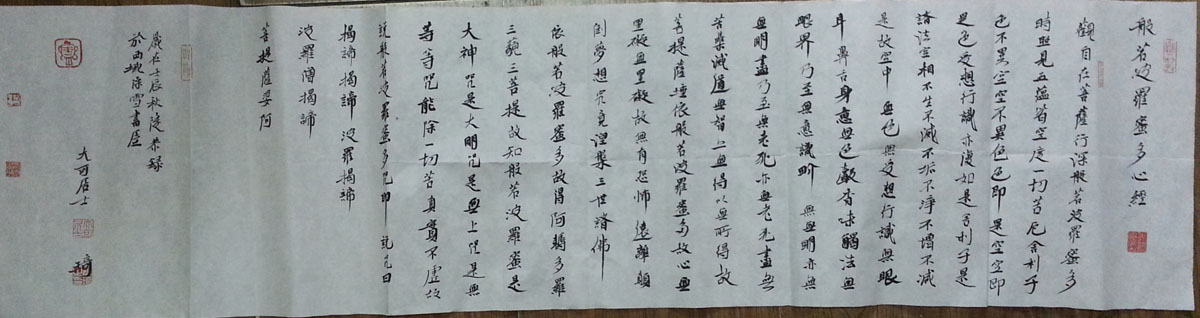 般若波羅蜜多心經
觀自在菩薩行深般若波羅蜜多
時照見五蘊皆空度一切苦厄舍利子
色不異空空不異色色即是空空即
是色受想行識亦復如是舍利子是
諸法空相不生不滅不垢不淨不增不減
是故空中無色無受想行識無眼
耳鼻舌身意無色聲香味觸法無
眼界乃至無意識界無無明亦無
無明盡乃至無老死亦無老死盡無
苦集滅道無智亦無得以無所得故
菩提薩埵依般若波羅蜜多故心無
罣礙無罣礙故無有恐怖遠離顛
倒夢想究竟涅槃三世諸佛
依般若波羅蜜多故得阿耨多羅
三藐三菩提故知般若波羅蜜是
大神咒是大明咒是無上咒是無
等等咒能除一切苦真實不虛故
說般若波羅蜜多咒曰 說咒曰
揭諦揭諦 波羅揭諦
波羅僧揭諦
菩提薩婆訶
歲在壬辰秋陵恭錄
於西坡除雪書屋
居士